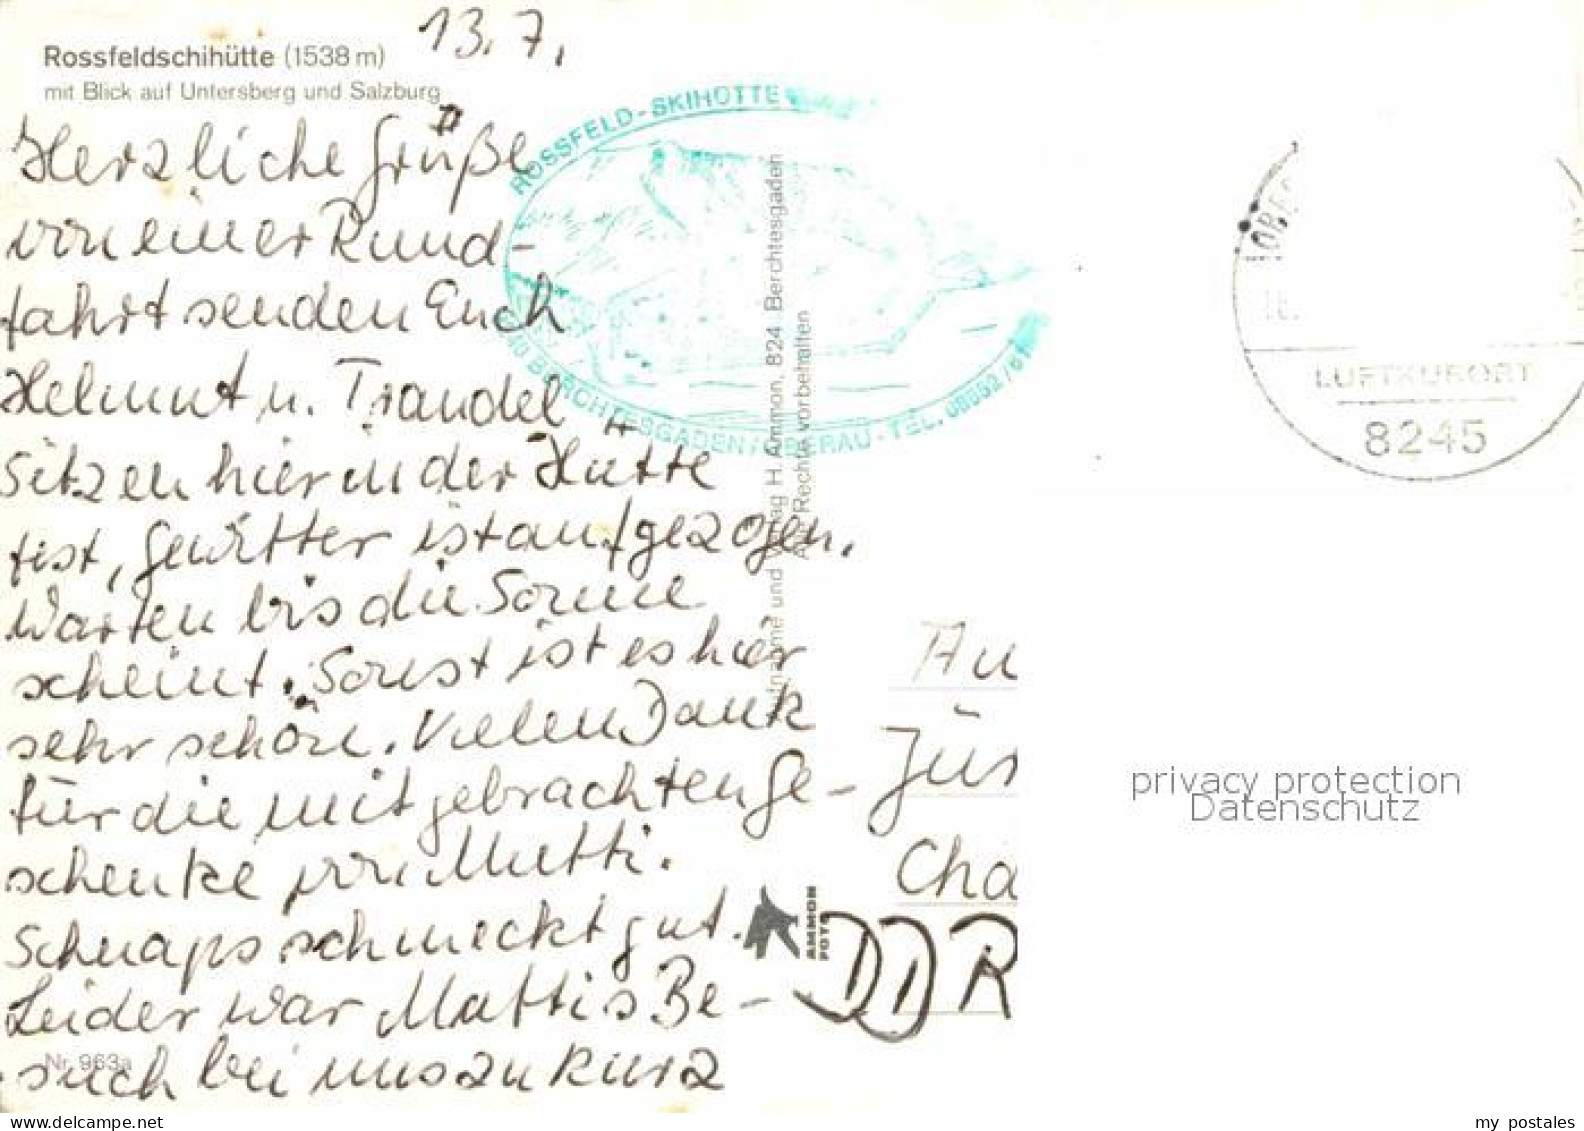 13.7.
Rossfeldschihütte (1538 m)
mit Blick auf Untersberg und Salzburg
Herzliche Grüße
von einer Rund-
fahrt senden Euch
Helmut u. Traudel
Sitzen hier in der Hütte
fest, Gewitter ist aufgezogen.
Warten bis die Sonne
scheint. Sonst ist es hier
sehr schön. Vielen Dank
für die mitgebrachten Ge-
schenke von Mutti.
Schnaps schmeckt gut.
Leider war Muttis Be-
such bei uns zu kurz
Nr. 963a
ROSSFELD-SKIHÜTTE
BERCHTESGADEN/OBERAU-TEL. 08652/61
Verlag H. Ammon, 824 Berchtesgaden
Alle Rechte vorbehalten
AMMON
FOTO
LUFTKURORT
8245
An
Jür
Cha
DDR
privacy protection
Datenschutz
my postales
www.delcampe.net